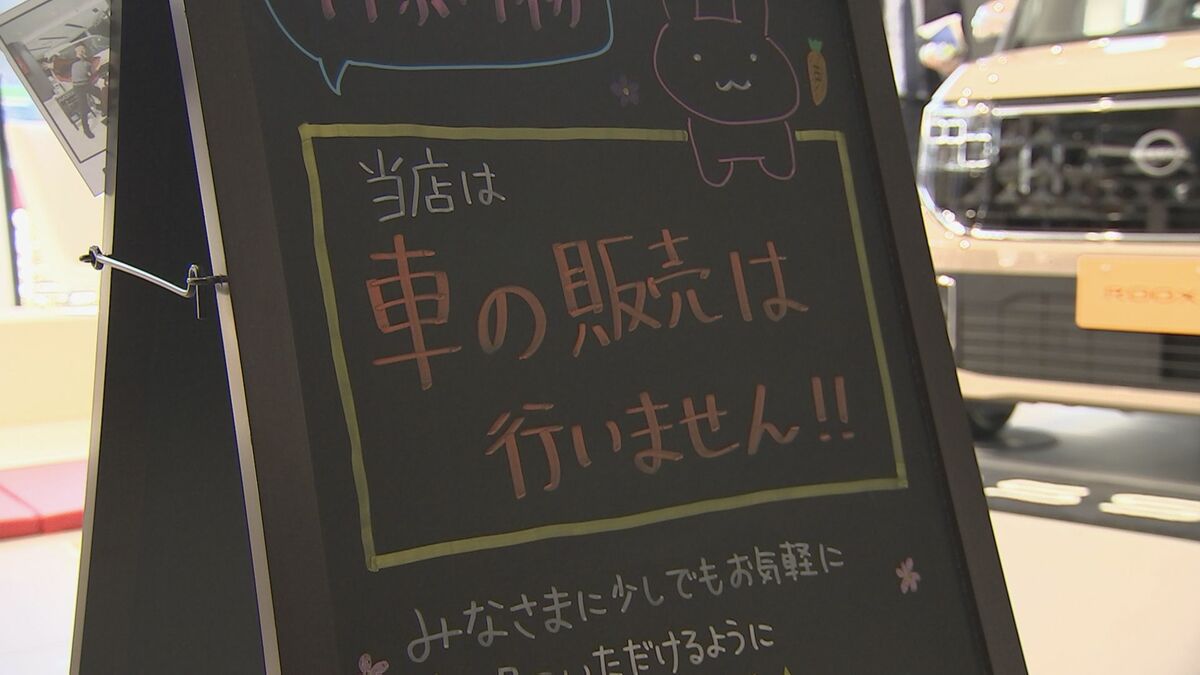 当店は
車の販売は
行いません!!
みなさまに少しでもお気軽に
いただけるように